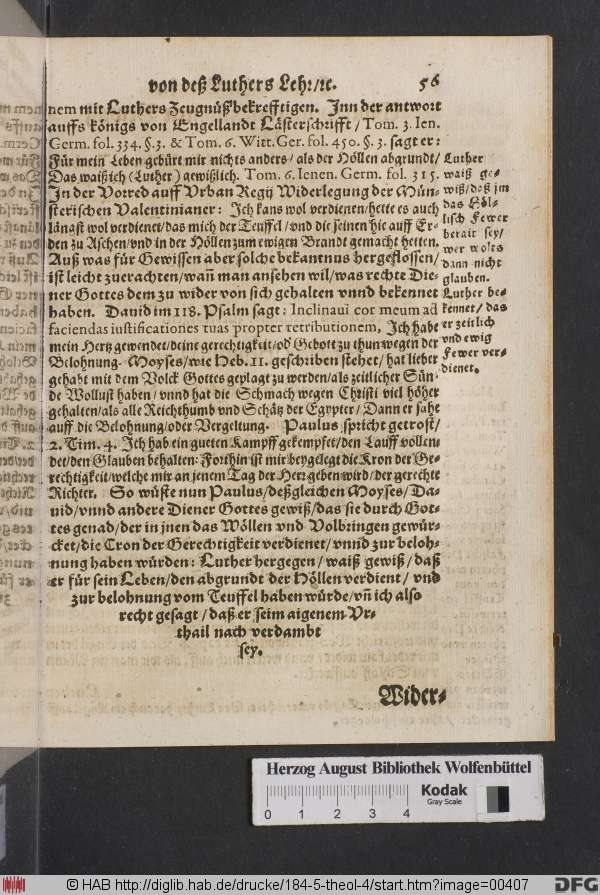 von deß Luthers Lehr/ꝛc. 56
nem mit Luthers Zeugnüß bekrefftigen. Inn der antwort
auffs königs von Engellandt Lästerschrifft/ Tom. 3. Ien.
Germ. fol. 334. §. 3. & Tom. 6. Witt. Ger. fol. 450. §. 3. sagt er:
Für mein Leben gebürt mir nichts anders/ als der Höllen abgrundt/
Das waiß ich (Luther) gewißlich. Tom. 6. Ienen. Germ. fol. 315.
In der Vorred auff Vrban Regij Widerlegung der Mün-
sterischen Valentinianer: Ich kans wol verdienen/ hette es auch
längst wol verdienet/ das mich der Teuffel/ vnd die seinen hie auff Er-
den zu Aschen/ vnd in der Höllen zum ewigen Brandt gemacht hetten.
Auß was für Gewissen aber solche bekantnus hergeflossen/
ist leicht zuerachten/ wañ man ansehen wil/ was rechte Die-
ner Gottes dem zu wider von sich gehalten vnnd bekennet
haben. Dauid im 118. Psalm sagt: Inclinaui cor meum ad
faciendas iustificationes tuas propter retributionem, Ich habe
mein Hertz gewendet/ deine gerechtigkeit/ od Gebott zu thun wegen der
Belohnung. Moyses/ wie Heb. 11. geschriben stehet/ hat lieber
gehabt mit dem Volck Gottes geplagt zu werden/ als zeitlicher Sün-
de Wollust haben/ vnnd hat die Schmach wegen Christi viel höher
gehalten/ als alle Reichthumb vnd Schätz der Egypter/ Dann er sahe
auff die Belohnung/ oder Vergeltung. Paulus spricht getrost/
2. Tim. 4. Ich hab ein gueten Kampff gekempfet/ den Lauff vollen-
det/ den Glauben behalten: Forthin ist mir beygelegt die Kron der Ge-
rechtigkeit/ welche mir an jenem Tag der Herr geben wird/ der gerechte
Richter. So wüste nun Paulus/ deßgleichen Moyses/ Da-
uid/ vnnd andere Diener Gottes gewiß/ das sie durch Got-
tes genad/ der in jnen das Wöllen vnd Volbringen gewür-
cket/ die Cron der Gerechtigkeit verdienet/ vnnd zur beloh-
nung haben würden: Luther hergegen/ waiß gewiß/ daß
er für sein Leben/ den abgrundt der Höllen verdient/ vnd
zur belohnung vom Teuffel haben würde/ vñ ich also
recht gesagt/ daß er seim aigenem Vr-
thail nach verdambt
sey.
Luther
waiß ge-
wiß/ daß jm
das Höl-
lisch Fewer
berait sey/
wer wolts
dann nicht
glauben.
Luther be-
kennet/ das
er zeitlich
vnd ewig
Fewer ver-
dienet.
Wider-
Herzog August Bibliothek Wolfenbüttel
0 1 2 3 4
Kodak
Gray Scale
© HAB http://diglib.hab.de/drucke/184-5-theol-4/start.htm?image=00407
DFG